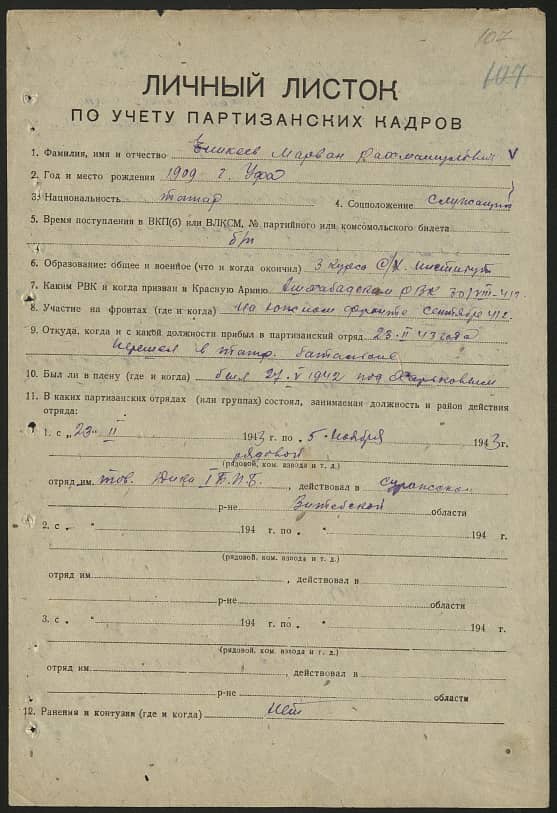 107
107
ЛИЧНЫЙ ЛИСТОК
ПО УЧЕТУ ПАРТИЗАНСКИХ КАДРОВ
1. Фамилия, имя и отчество Еникеев Марван
2. Год и место рождения 1909 г. Уфа
3. Национальность татар 4. Соцположение служащий
5. Время поступления в ВКП(б) или ВЛКСМ, № партийного или комсомольского билета
б/п
6. Образование: общее и военное (что и когда окончил) 3 курса С/Х. институт
7. Каким РВК и когда призван в Красную Армию РВК 30/VIII-41г.
8. Участие на фронтах (где и когда) на южном фронте сентябре 41г.
9. Откуда, когда и с какой должности прибыл в партизанский отряд 23-II 43 года
перешел в татар. батальоне
10. Был ли в плену (где и когда) был 27-V 1942 под Харьковым
11. В каких партизанских отрядах (или группах) состоял, занимаемая должность и район действия
отряда:
1. с „23" II 1943 г. по „5 ноября 1943 г.
рядовой
(рядовой, ком. взвода и т. д.)
отряд им. тов. I , действовал в
р-не Витебской области
2. с „ " 194 г. по „ " 194 г.
(рядовой, ком. взвода и т. д.)
отряд им , действовал в
р-не области
3. с „ " 194 г. по „ " 194 г.
(рядовой, ком. взвода и т. д.)
отряд им. , действовал в
р-не области
12. Ранения и контузии (где и когда) нет